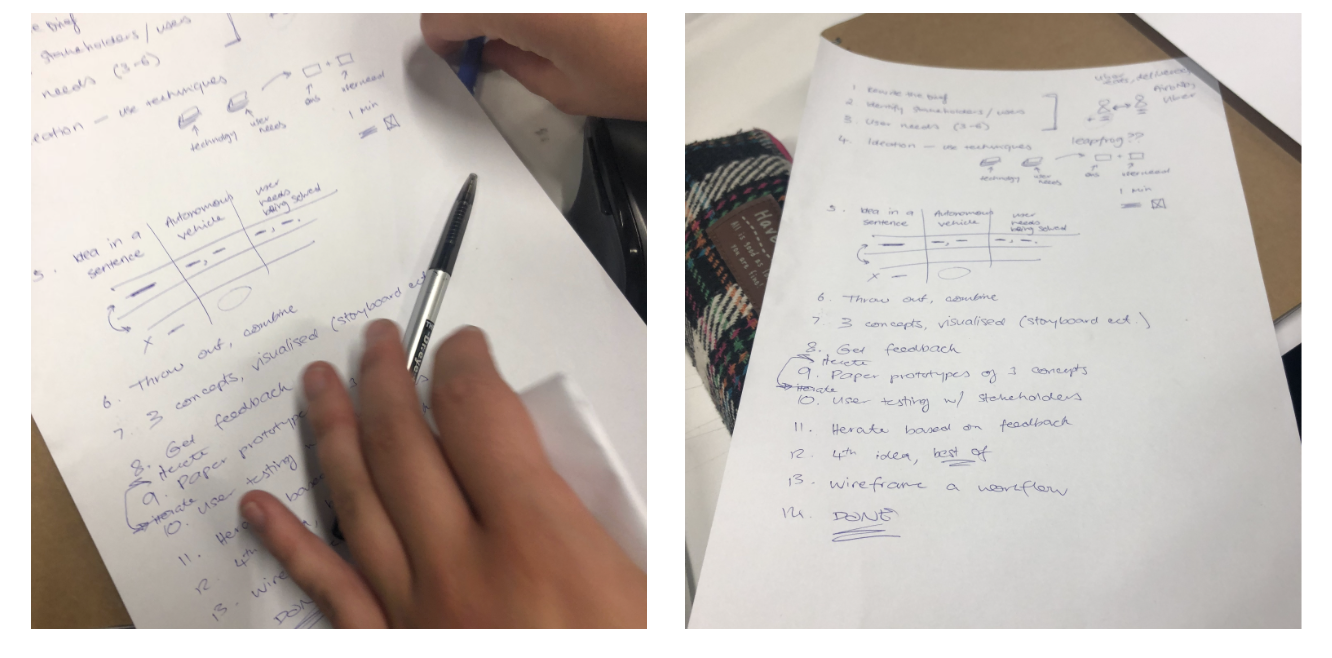 e brief
stakeholders / users
needs (3-6)
eation — use techniques
technology
user needs
1 min
5. Idea in a sentence
Autonomous vehicle
user needs being solved
x
6. Throw out, combine
7. 3 concepts, visualised (storyboard ect
8. Get feedback
iterate
9. Paper prototype
iterate
10. User testing
11.
12. 4th
13. Wire
DON
1
2 Identify stakeholders / users
3. User needs (3-6)
4. Ideation — use techniques
Uber
Airbnb
Uber
leapfrog ??
technology
user needs
1 min
5. Idea in a sentence
Autonomous vehicle
user needs being solved
x
6. Throw out, combine
7. 3 concepts, visualised (storyboard ect.)
8. Get feedback
iterate
9. Paper prototypes of 3 concepts
iterate
10. User testing w/ stakeholders
11. Iterate based on feedback
12. 4th idea, best of
13. Wireframe a workflow
14. DONE
Have